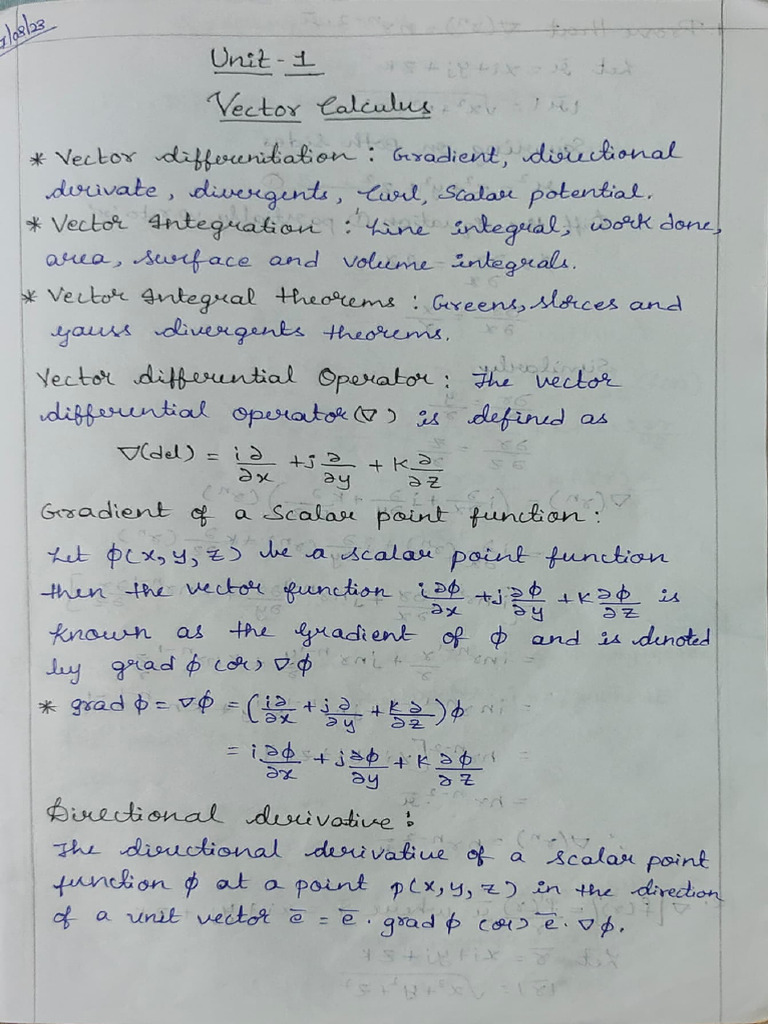 Unit - 1
Vector Calculus
* Vector differenitiation : Gradient, directional
derivate, divergents, Curl, Scalar potential.
* Vector Integration : Line integral, work done,
area, surface and volume integrals.
* Vector Integral theorems : Greens, storces and
gauss divergents theorems.
Vector differential Operator : The vector
differential operator (∇) is defined as
∇(del) = i∂/∂x + j∂/∂y + k∂/∂z
Gradient of a Scalar point function :
Let ϕ(x, y, z) be a scalar point function
then the vector function i∂ϕ/∂x + j∂ϕ/∂y + k∂ϕ/∂z is
known as the gradient of ϕ and is denoted
by grad ϕ (or) ∇·ϕ
* grad ϕ = ∇ϕ = (i∂/∂x + j∂/∂y + k∂/∂z)ϕ
= i∂ϕ/∂x + j∂ϕ/∂y + k∂ϕ/∂z
Directional derivative :
The directional derivative of a scalar point
function ϕ at a point p(x, y, z) in the direction
of a unit vector e̅ = e̅ . grad ϕ (or) e̅ . ∇ϕ.